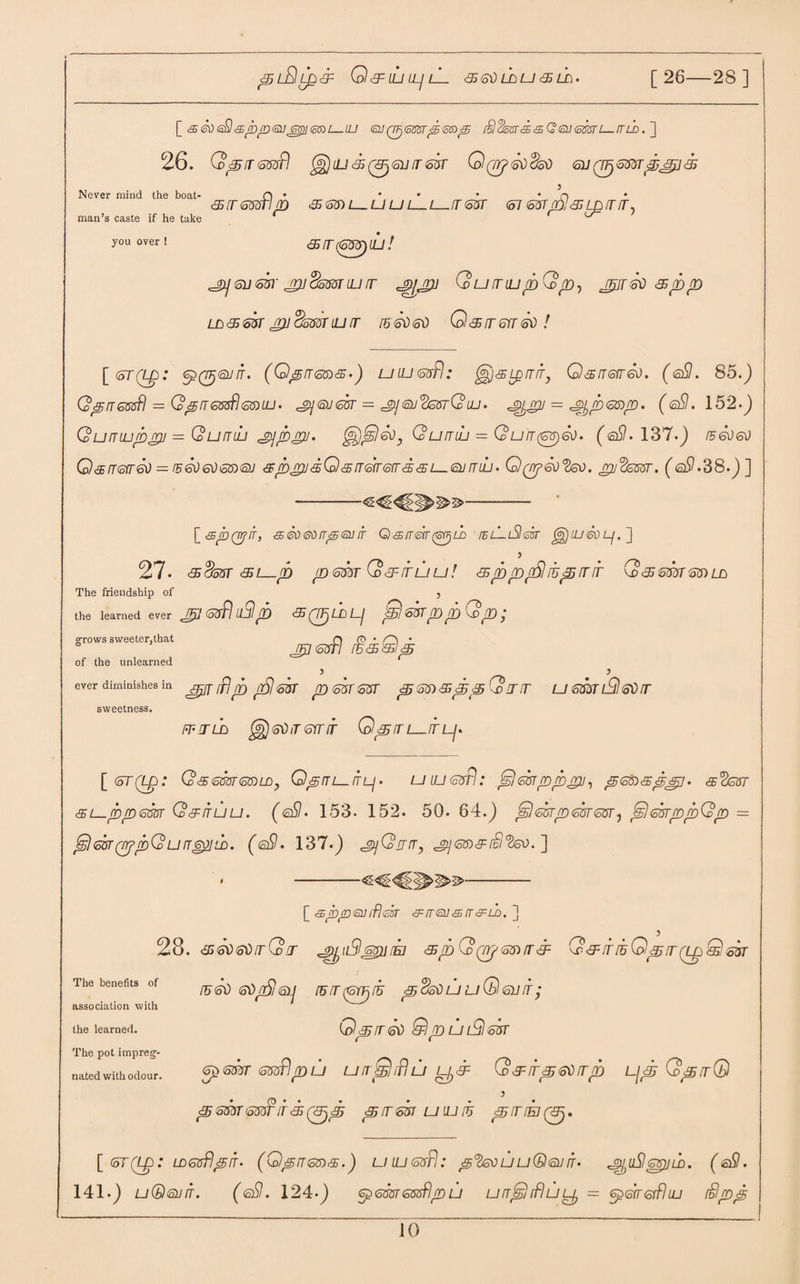 தமிழ்ச் செய்யுட் கலம்பகம். [26—28]
[கல்விகற்றவனுடைய வருணத்தை நினைக்கவேண்டாம்.]
26. தோணி இயக்குவான் தொல்லை வருணத்துக்
Never mind the boat-man's caste if he take you over!
காணிற் கடைப்பட்டான் என்றிகழார்,
காணாய்!
அவன் றுணையா ஆறு போயற்றே, நூல் கற்ற
மகன் றுணையா நல்ல கொளல்!
[எழு: ஒருவர். (தொகை.) பயனி: இகழார், கொளல். (வி. 85.)
தோணி = தோணியை. அவன் = அவனையே. ஆறு = ஆற்றை. (வி. 152.)
போயற்று = போய் அற்று. இதில், போய் = போனால். (வி. 137.) நல்ல
கொளல் = நல்லவை கற்றுக்கொள்ளக்கடவாய். தொல்லை. துணை. (வி.38.)]
[கற்றார், கல்லாதவர் கொள்ளும் நட்பின் இயல்பு.]
27. கனை கடற் றண் சேர்ப்ப! கற்றறிந்தார் கேண்மை
The friendship of
the learned ever
grows sweeter, that
of the unlearned
ever diminishes in
sweetness.
நுனியிற் கரும்பு தின்றற்றே;
நுனி நீக்கித்
தூரிற் றின் றன்ன தகைத்தரோ பண்பிலா
ஈரம் இலாளர் தொடர்பு.
[எழு: கேண்மை, தொடர்பு. பயனி: தின்றற்று, தகைத்து. கனை
கடற்றண் சேர்ப்ப. (வி. 153. 152. 50. 64.) தின்றன்ன, தின்றற்றே =
தின்றாற்போலும். (வி. 137.) அரோ, அசைநிலை.]
[கற்றவரின் சாவகாசம்.]
28. கல்லாரே ஆயினுங் கற்றோரைச் சேர்ந்தொழுகின்
The benefits of
association with
the learned.
The pot impreg-
nated with odour.
நல் லறிவு நாளுந் தலைப்படுவர்;
தொல் சிறப்பின்
ஒண் ணிறப் பாதிரிப் பூச் சேர்தலாற் புத் தோடு
தண்ணீர்க்குத் தான் பயந் தாங்கு.
[எழு: மனிதர். (தொகை.) பயனி: தலைப்படுவர். ஆயினும். (வி.
141.) படுவர். (வி. 124.) ஒண்ணிறப் பாதிரிப்பூ = ஒள்ளிய நிறத்த
10